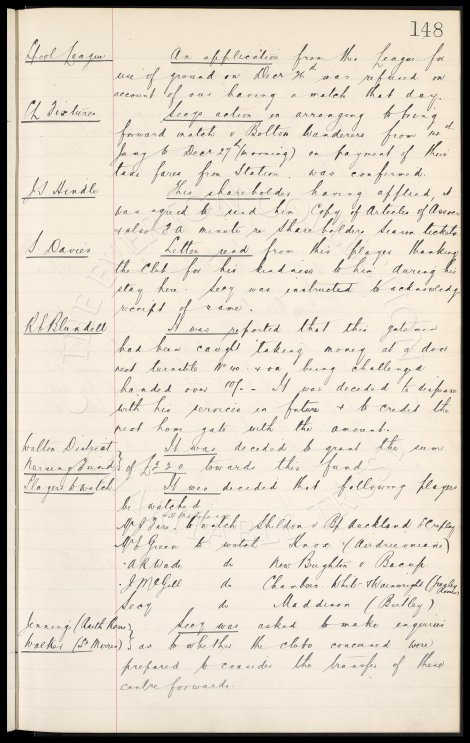 148
L'pool League An application from this League for
use of ground on Decr 26th was refused on
account of our having a match that day.
CL Fixtures Secys action in arranging to bring
forward match v Bolton Wanderers from
Jany to Decr 27th (morning) on payment of their
taxi fares from Station, was confirmed.
J S Hindle This shareholder having applied, it
was agreed to send him Copy of Articles of Assocn
& also a minute re Shareholders season tickets.
S Davies Letter read from this player thanking
the Club for his kindness to him during his
stay here. Secy was instructed to acknowledge
receipt of same.
R E Blundell It was reported that this gateman
had been caught taking money at a door
next turnstile No 40. & on being challenged
handed over 10/-. It was decided to dispense
with his services in future & to credit the
next home gate with the amount.
Walton District It was decided to grant the sum
Nursing Fund of £2.2.0 towards this fund.
Players to watch It was decided that following players
be watched
Mr J Fare to watch Shildon v Bp Auckland
Mr E Green to watch Knox (Airdrieonians)
" A R Wade do New Brighton v Bacup
" J McGill do Chambers. White & Wainwright
Secy do Maddison (Birtley)
Jennings (Raith Rovs) Secy was asked to make enquiries
Walker (St Mirren) as to whether the clubs concerned were
prepared to consider the transfer of these
centre forwards.